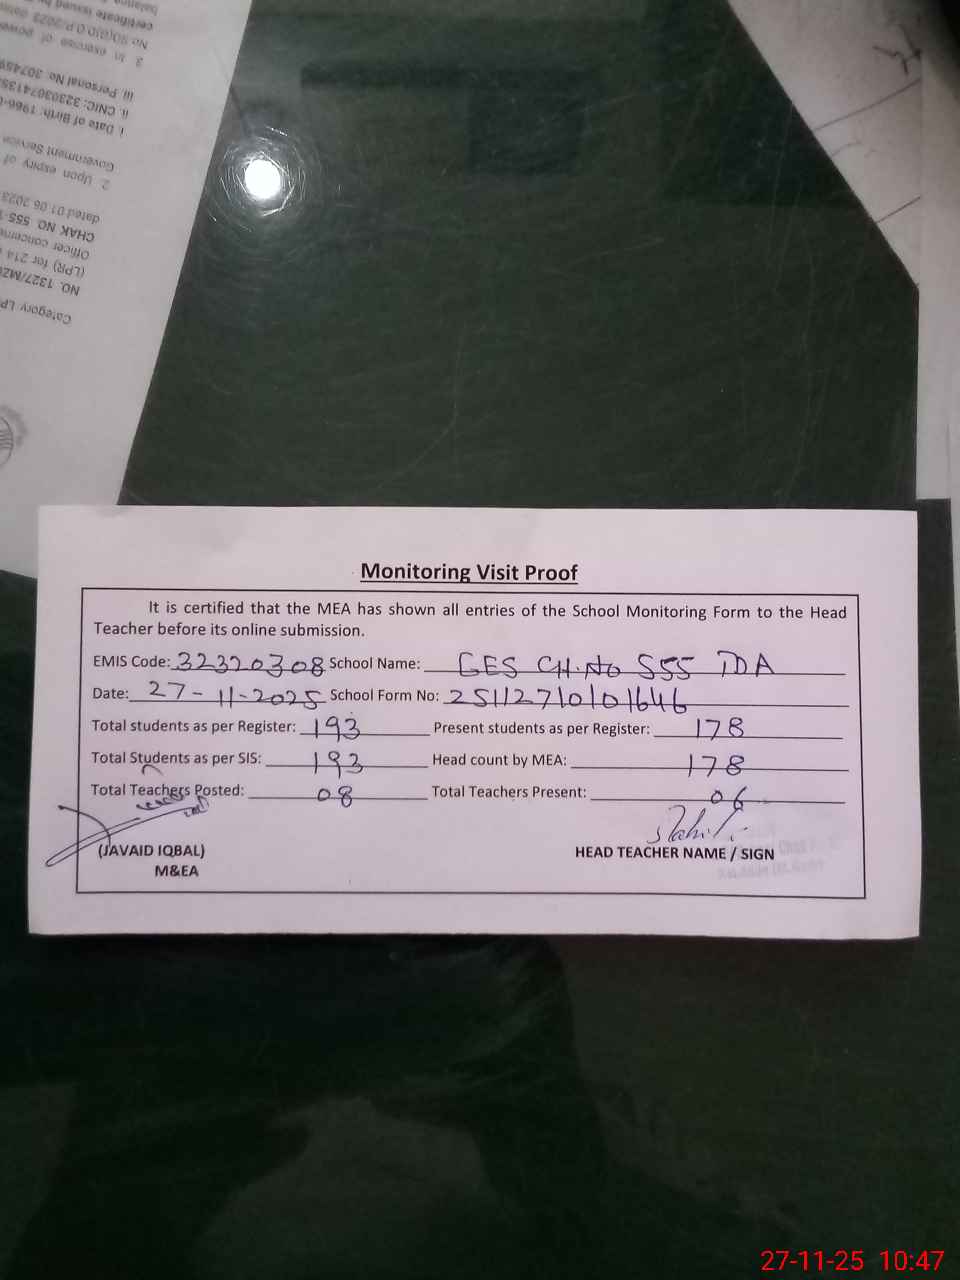 Category LP
NO. 1327/MZ
(LPR) for 214
Officer concerne
CHAK NO. 555-
dated 01.06.2023
2. Upon expiry of
Government Service
i. Date of Birth: 1966-
ii. CNIC: 32303074135
iii. Personal No. 307459
3. In exercise of power
certificate issued by
Monitoring Visit Proof
It is certified that the MEA has shown all entries of the School Monitoring Form to the Head
Teacher before its online submission.
EMIS Code: 32320308 School Name: GES CH.No 555 TDA
Date: 27-11-2025 School Form No: 25112710101646
Total students as per Register: 193 Present students as per Register: 178
Total Students as per SIS: 193 Head count by MEA: 178
Total Teachers Posted: 08 Total Teachers Present: 06
(JAVAID IQBAL) HEAD TEACHER NAME / SIGN
M&EA
27-11-25 10:47